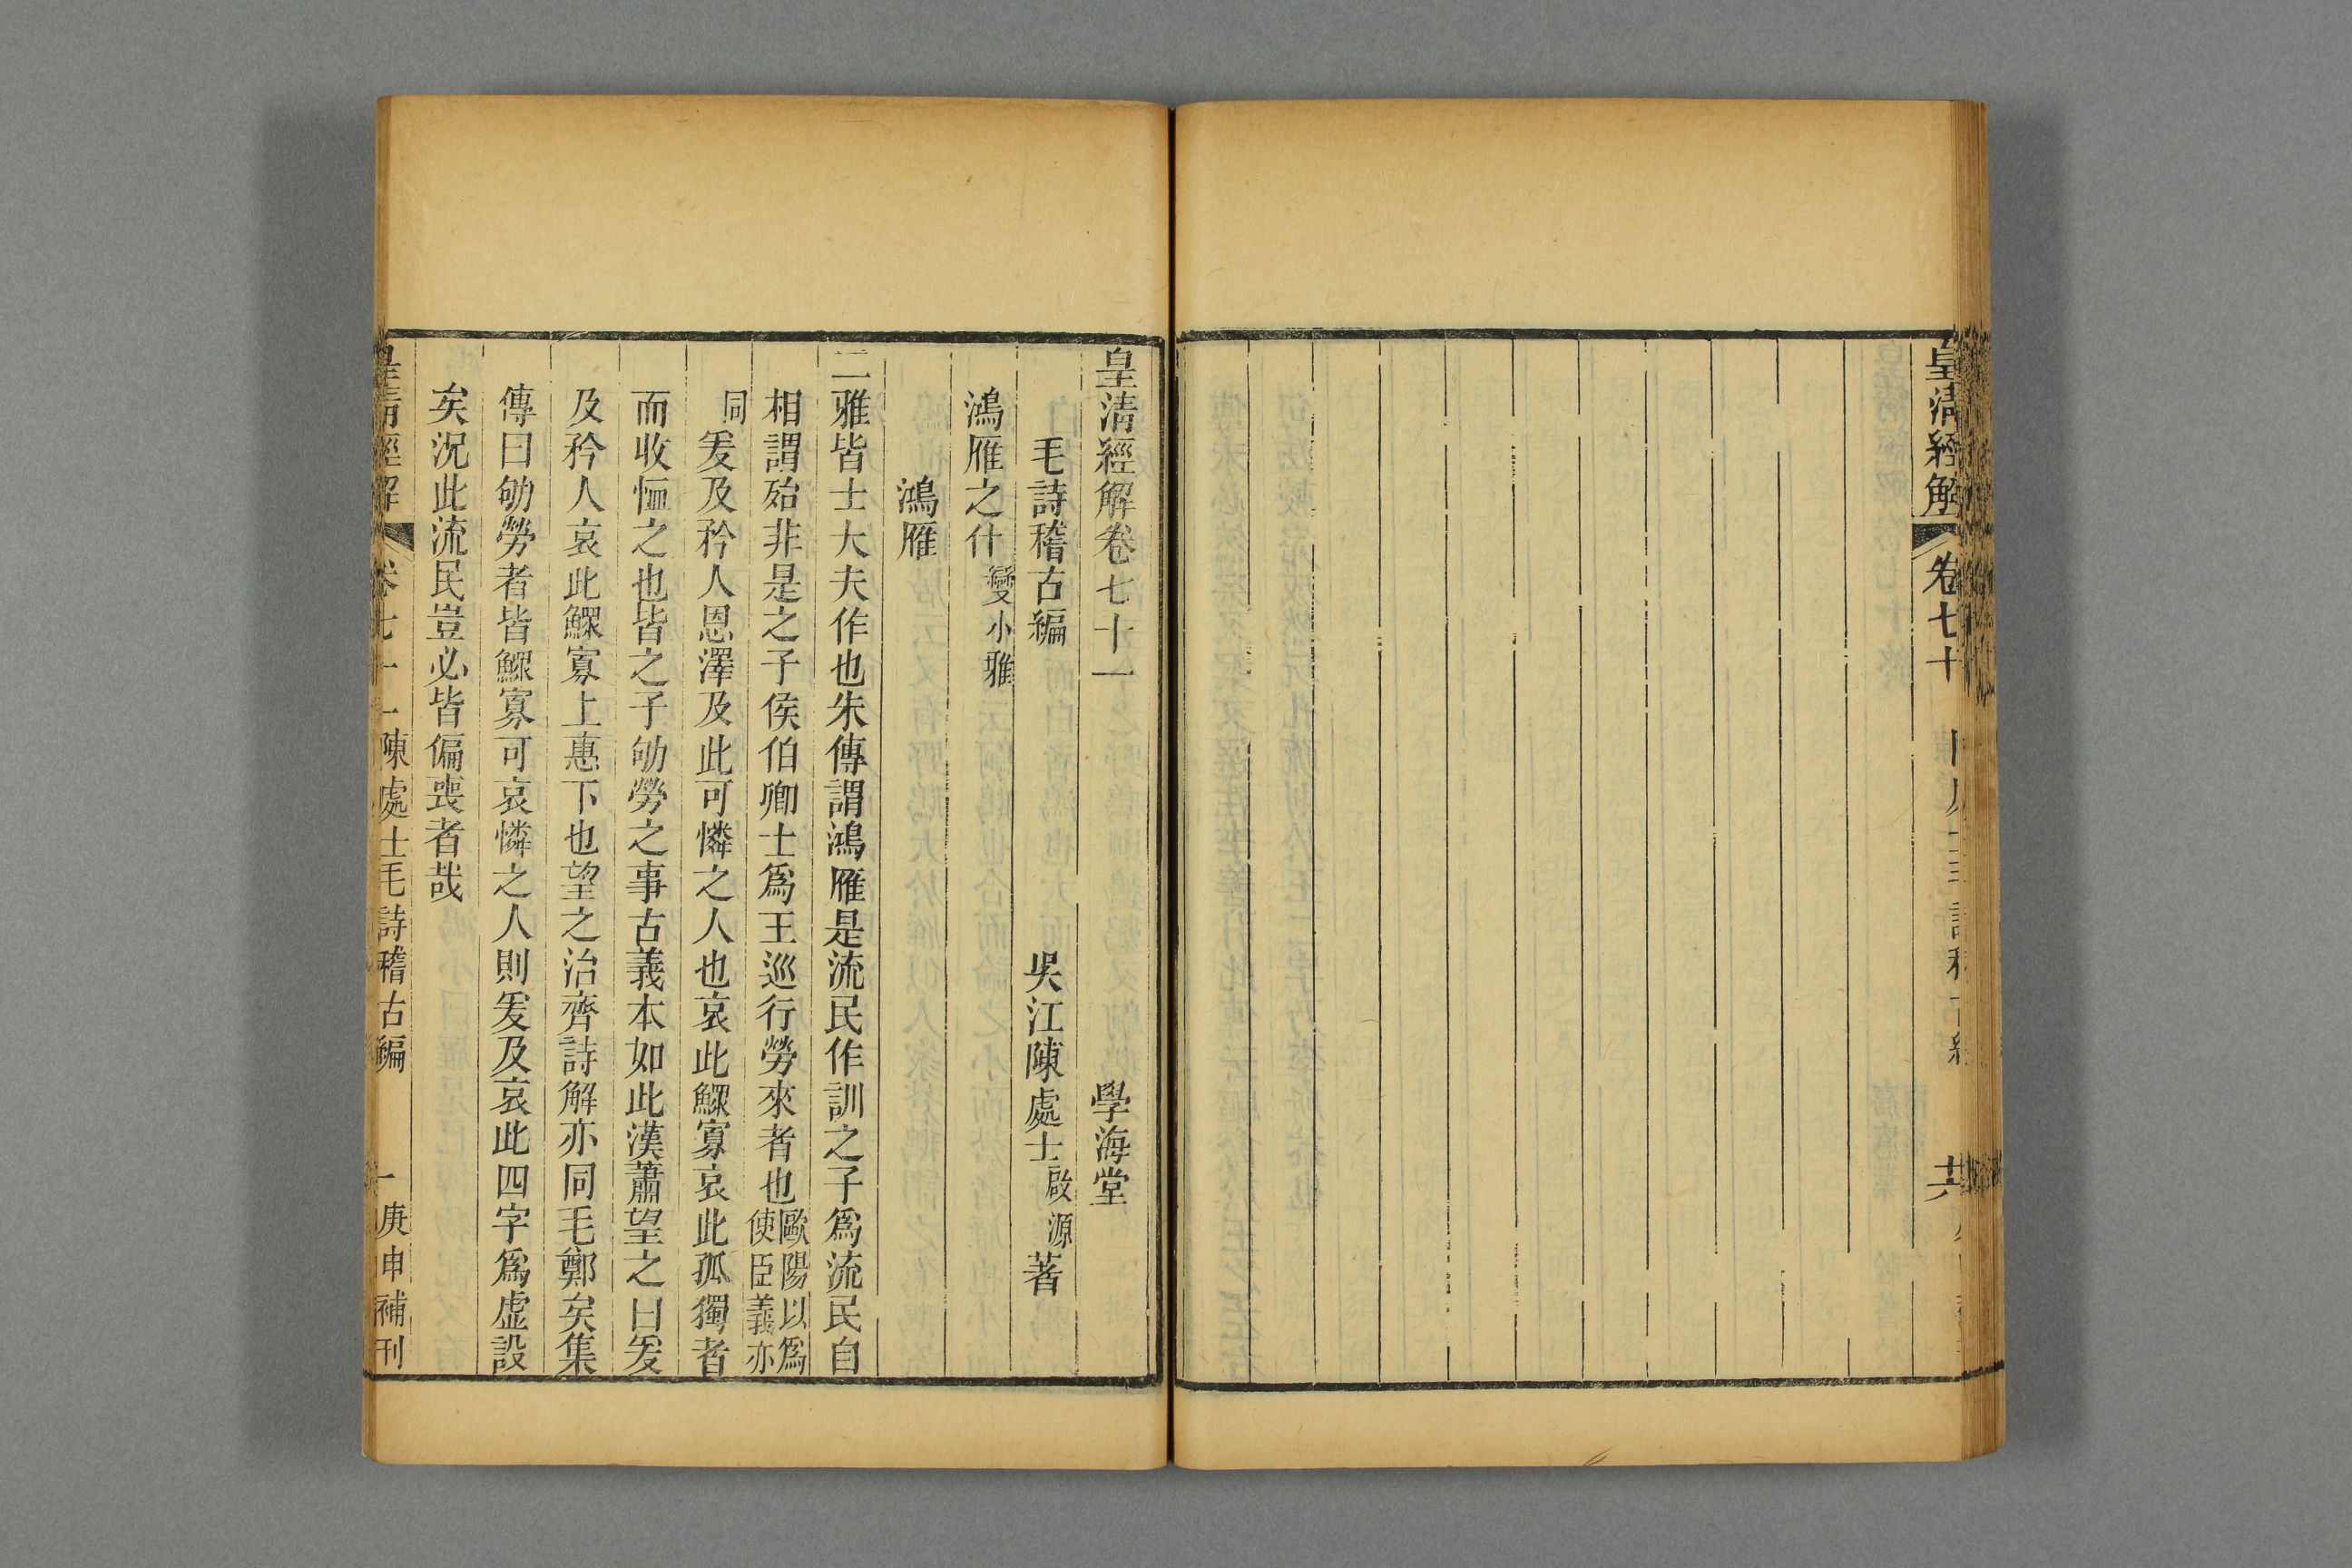 皇清經解
卷七十
皇清經解卷七十一 學海堂
毛詩稽古編 吳江陳處士啟源著
鴻雁之什 變小雅
鴻雁
二雅皆士大夫作也朱傳謂鴻雁是流民作訓之子爲流民自
相謂殆非是之子侯伯卿士爲王巡行勞來者也歐陽以爲使臣義亦
同爰及矜人恩澤及此可憐之人也哀此鰥寡哀此孤獨者
而收恤之也皆之子劬勞之事古義本如此漢蕭望之曰爰
及矜人哀此鰥寡上惠下也望之治齊詩解亦同毛鄭矣集
傳曰劬勞者皆鰥寡可哀憐之人則爰及哀此四字爲虛設
矣況此流民豈必皆偏喪者哉
皇清經解 卷七十一 陳處士毛詩稽古編 一 庚申補刊